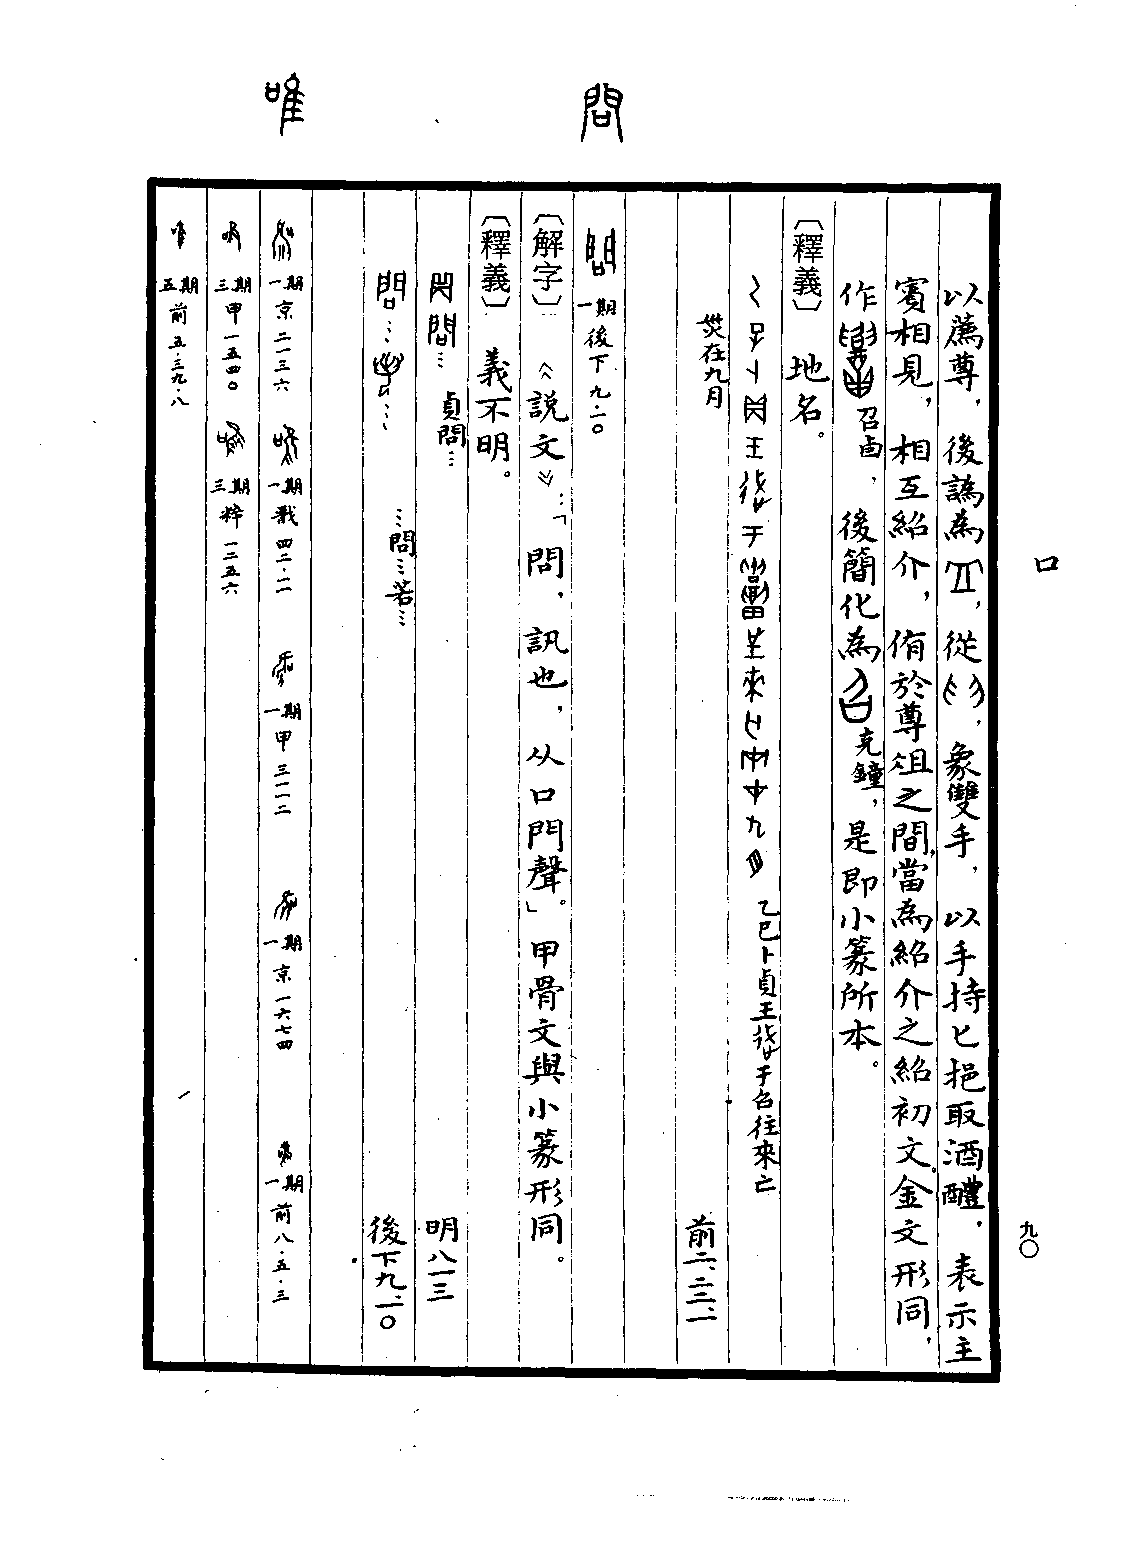 口
九〇
以薦尊，後譌為，從，象雙手，以手持匕挹取酒醴，表示主
賓相見，相互紹介，侑於尊俎之間，當為紹介之紹初文。金文形同，
作召卣，後簡化為克鐘，是即小篆所本。
〔釋義〕地名。
乙巳卜貞王于召往來亡
災在九月
前二、二二、一
問
一期後下九·一〇
〔解字〕《說文》：「問，訊也，从口門聲。」甲骨文與小篆形同。
〔釋義〕義不明。
貞問…
明八一三
…問…若…
後下九、一〇
唯
一期京二一三六
一期戩四二·一一
一期甲三一一二
一期京一六七四
一期前八·五·三
三期甲一五四〇
三期粹一二五六
五期前五·三九·八